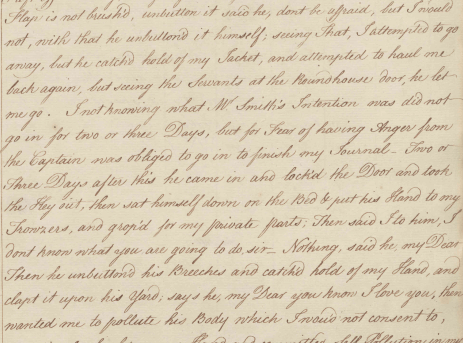 Flap is not brush'd, unbutton it said he, dont be affraid, but I would
not, with that he unbuttond it himself; seeing That, I attempted to go
away, but he catch'd hold of my Jacket, and attempted to haul me
back again, but seeing the Servants at the Roundhouse door, he let
me go. I not knowing what Mr. Smith's Intention was did not
go in for two or three Days, but for Fear of having Anger from
the Captain was obliged to go in to finish my Journal - Two or
Three Days after this he came in and lock'd the Door and took
the Key out, then sat himself down on the Bed & put his Hand to my
Trowzers, and grop'd for my private parts; Then said I to him, I
dont know what you are going to do, sir - Nothing, said he, my Dear
Then he unbuttond his Breeches and catch'd hold of my Hand, and
clapt it upon his Yard; says he, my Dear you know I love you, then
wanted me to pollute his Body which I would not consent to;